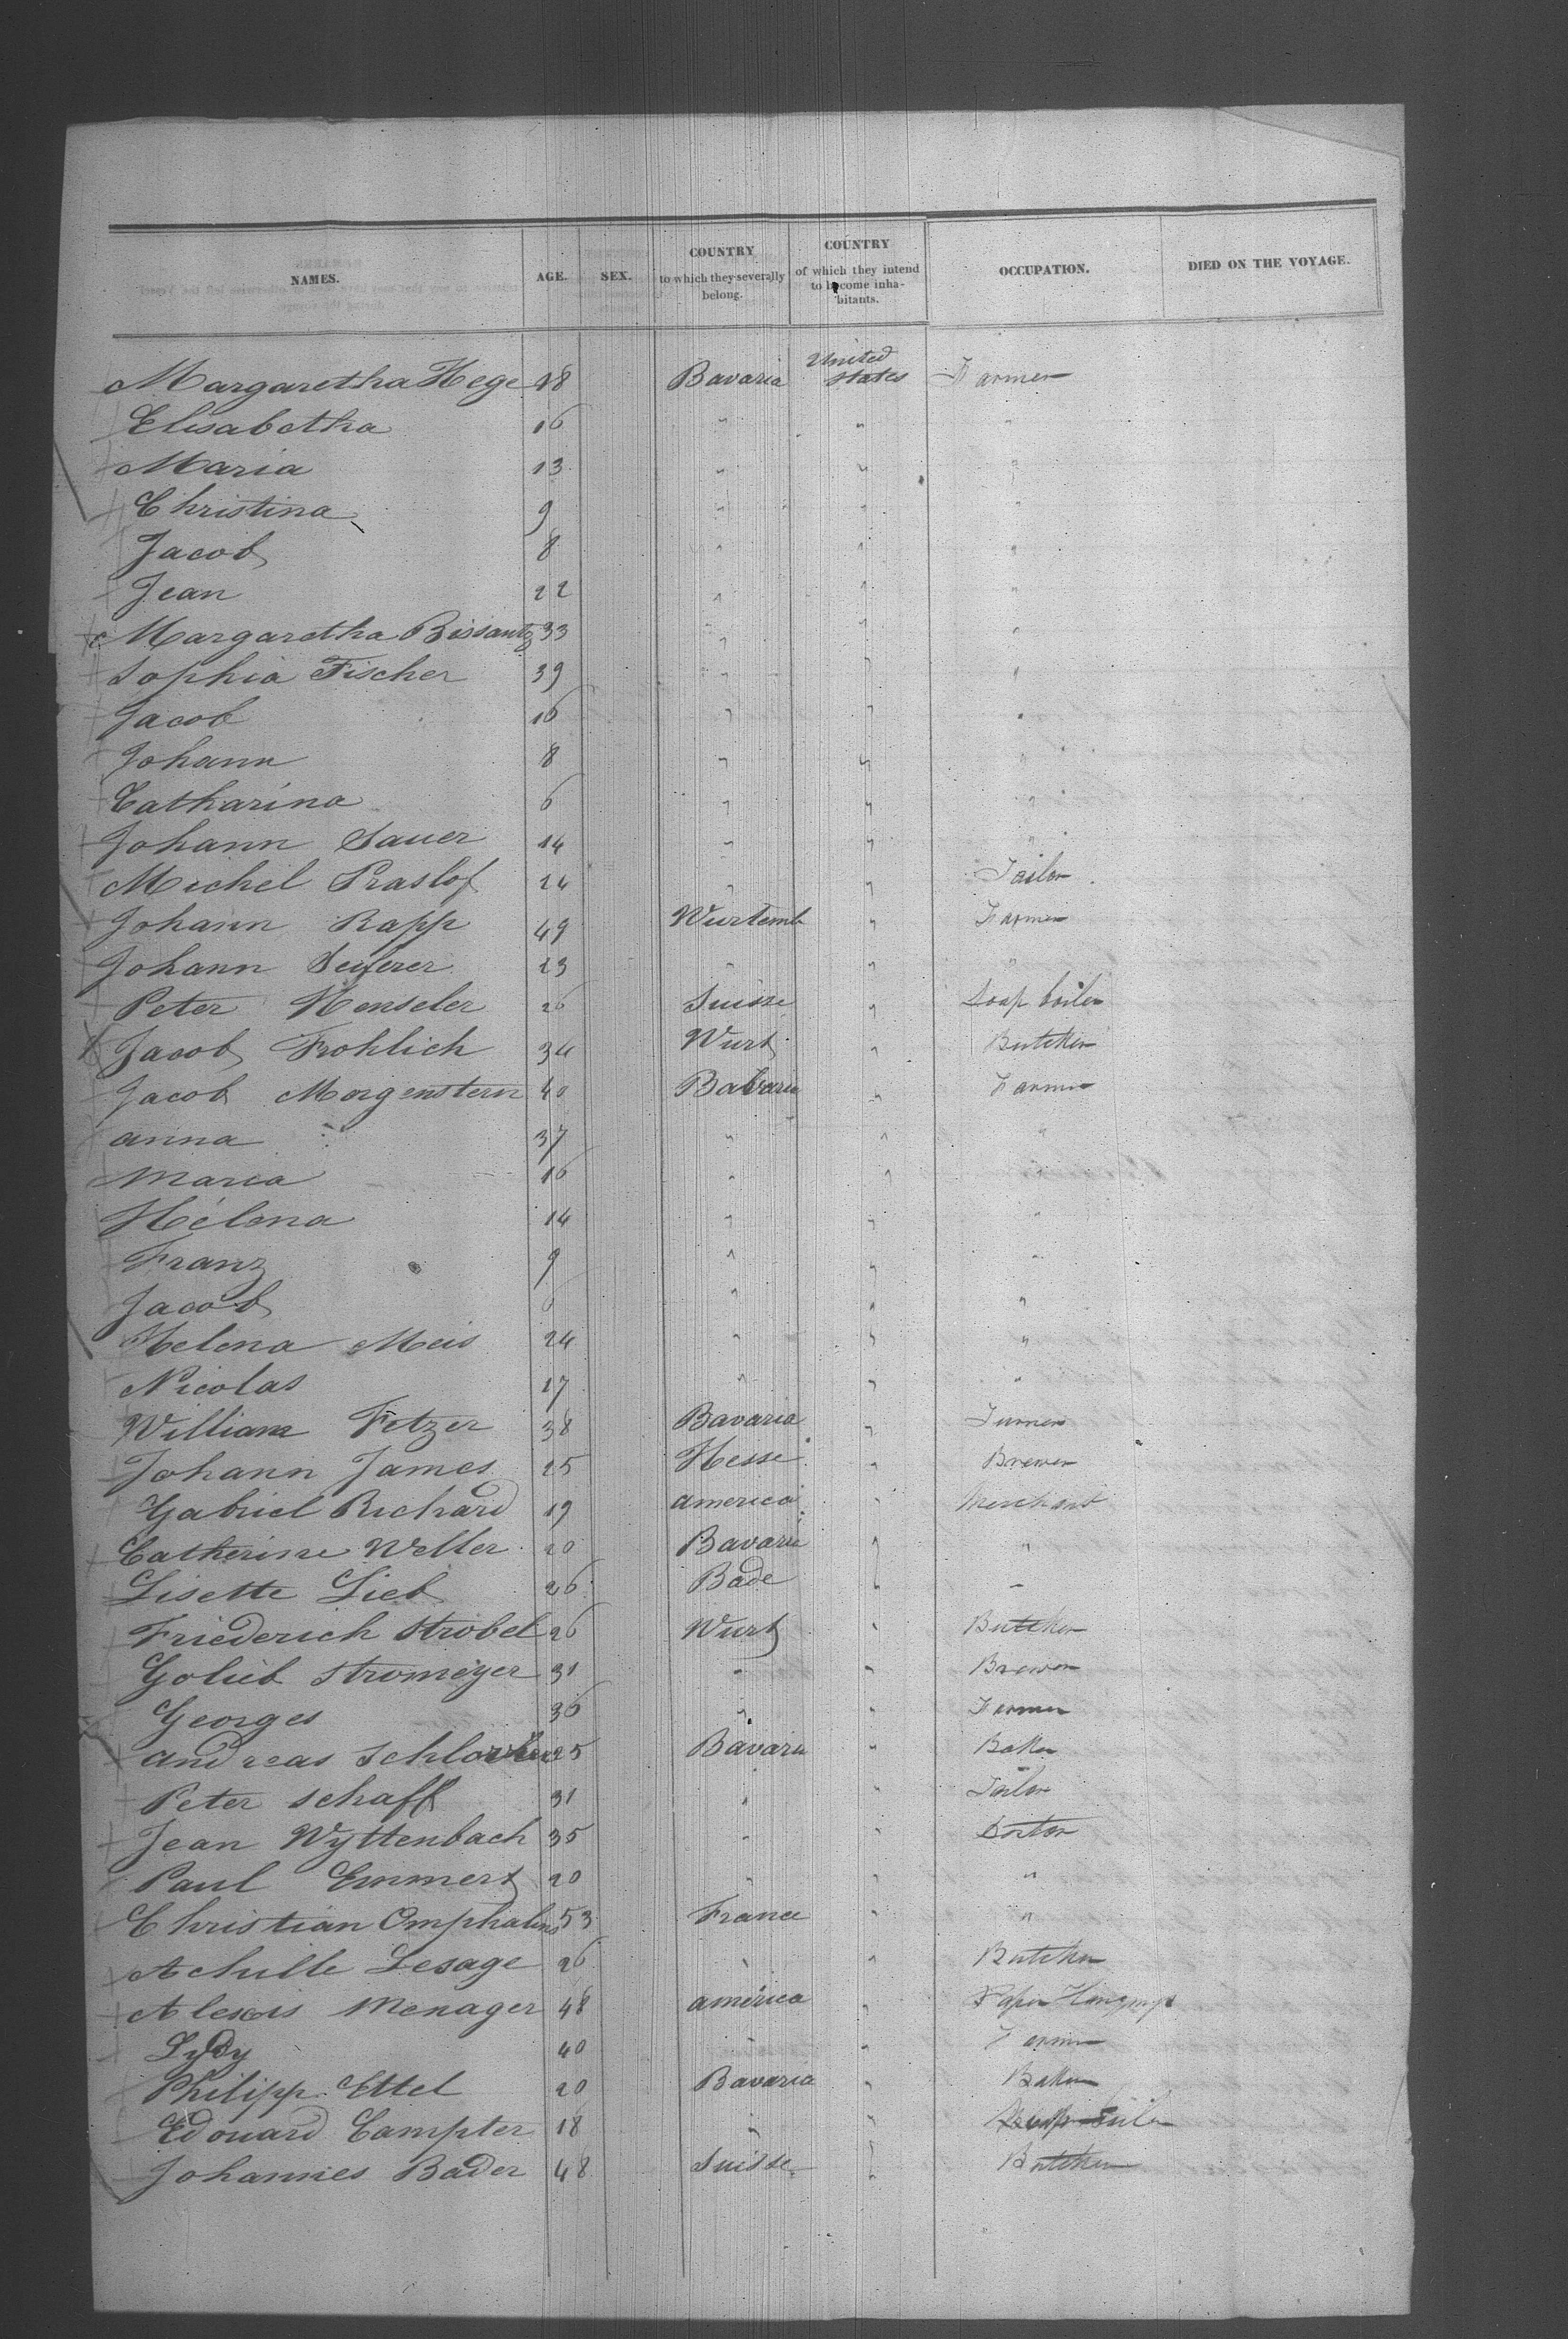 NAMES. AGE. SEX. COUNTRY to which they severally belong. COUNTRY of which they intend to become inhabitants. OCCUPATION. DIED ON THE VOYAGE.
Margaretha Hege 48 Bavaria United States Farmer
Elisabetha 16 " " "
Maria 13 " " "
Christina 9 " " "
Jacob 8 " " "
Jean 22 " " "
Margaretha Bissantz 33 " " "
Sophia Fischer 39 " " "
Jacob 16 " " "
Johann 8 " " "
Catharina 6 " " "
Johann Sauer 14 " " "
Michel Praslof 24 " " Tailor
Johann Rapp 49 Wurtemb " Farmer
Johann Seiferer 23 " " "
Peter Henseler 26 Suisse " Soap boiler
Jacob Frohlich 34 Wurt " Butcher
Jacob Morgenstern 40 Bavaria " Farmer
anna 37 " " "
Maria 16 " " "
Hélena 14 " " "
Franz 9 " " "
Jacob 6 " " "
Helena Meis 24 " " "
Nicolas 17 " " "
William Fetzer 38 Bavaria " Turner
Johann James 25 Hesse " Brewer
Gabriel Richard 19 america " Merchant
Catherine Weller 20 Bavaria " "
Lisette Lieb 26 Bade " "
Friederich Strobel 26 Wurt " Butcher
Golieb Stromeyer 31 " " Brewer
Georges 36 " " Farmer
andreas 25 Bavaria " Baker
Peter Schaff 31 " " Tailor
Jean Wyttenbach 35 " " Doctor
Paul Emmert 20 " " "
Christian Omphalius 53 France " "
Achille Lesage 26 " " Butcher
Alexis Menager 48 america " Paper
Lydy 40 " " Farmer
Philipp Ettel 20 Bavaria " Baker
Edouard Campter 18 " "
Johannes Bader 48 Suisse " Butcher